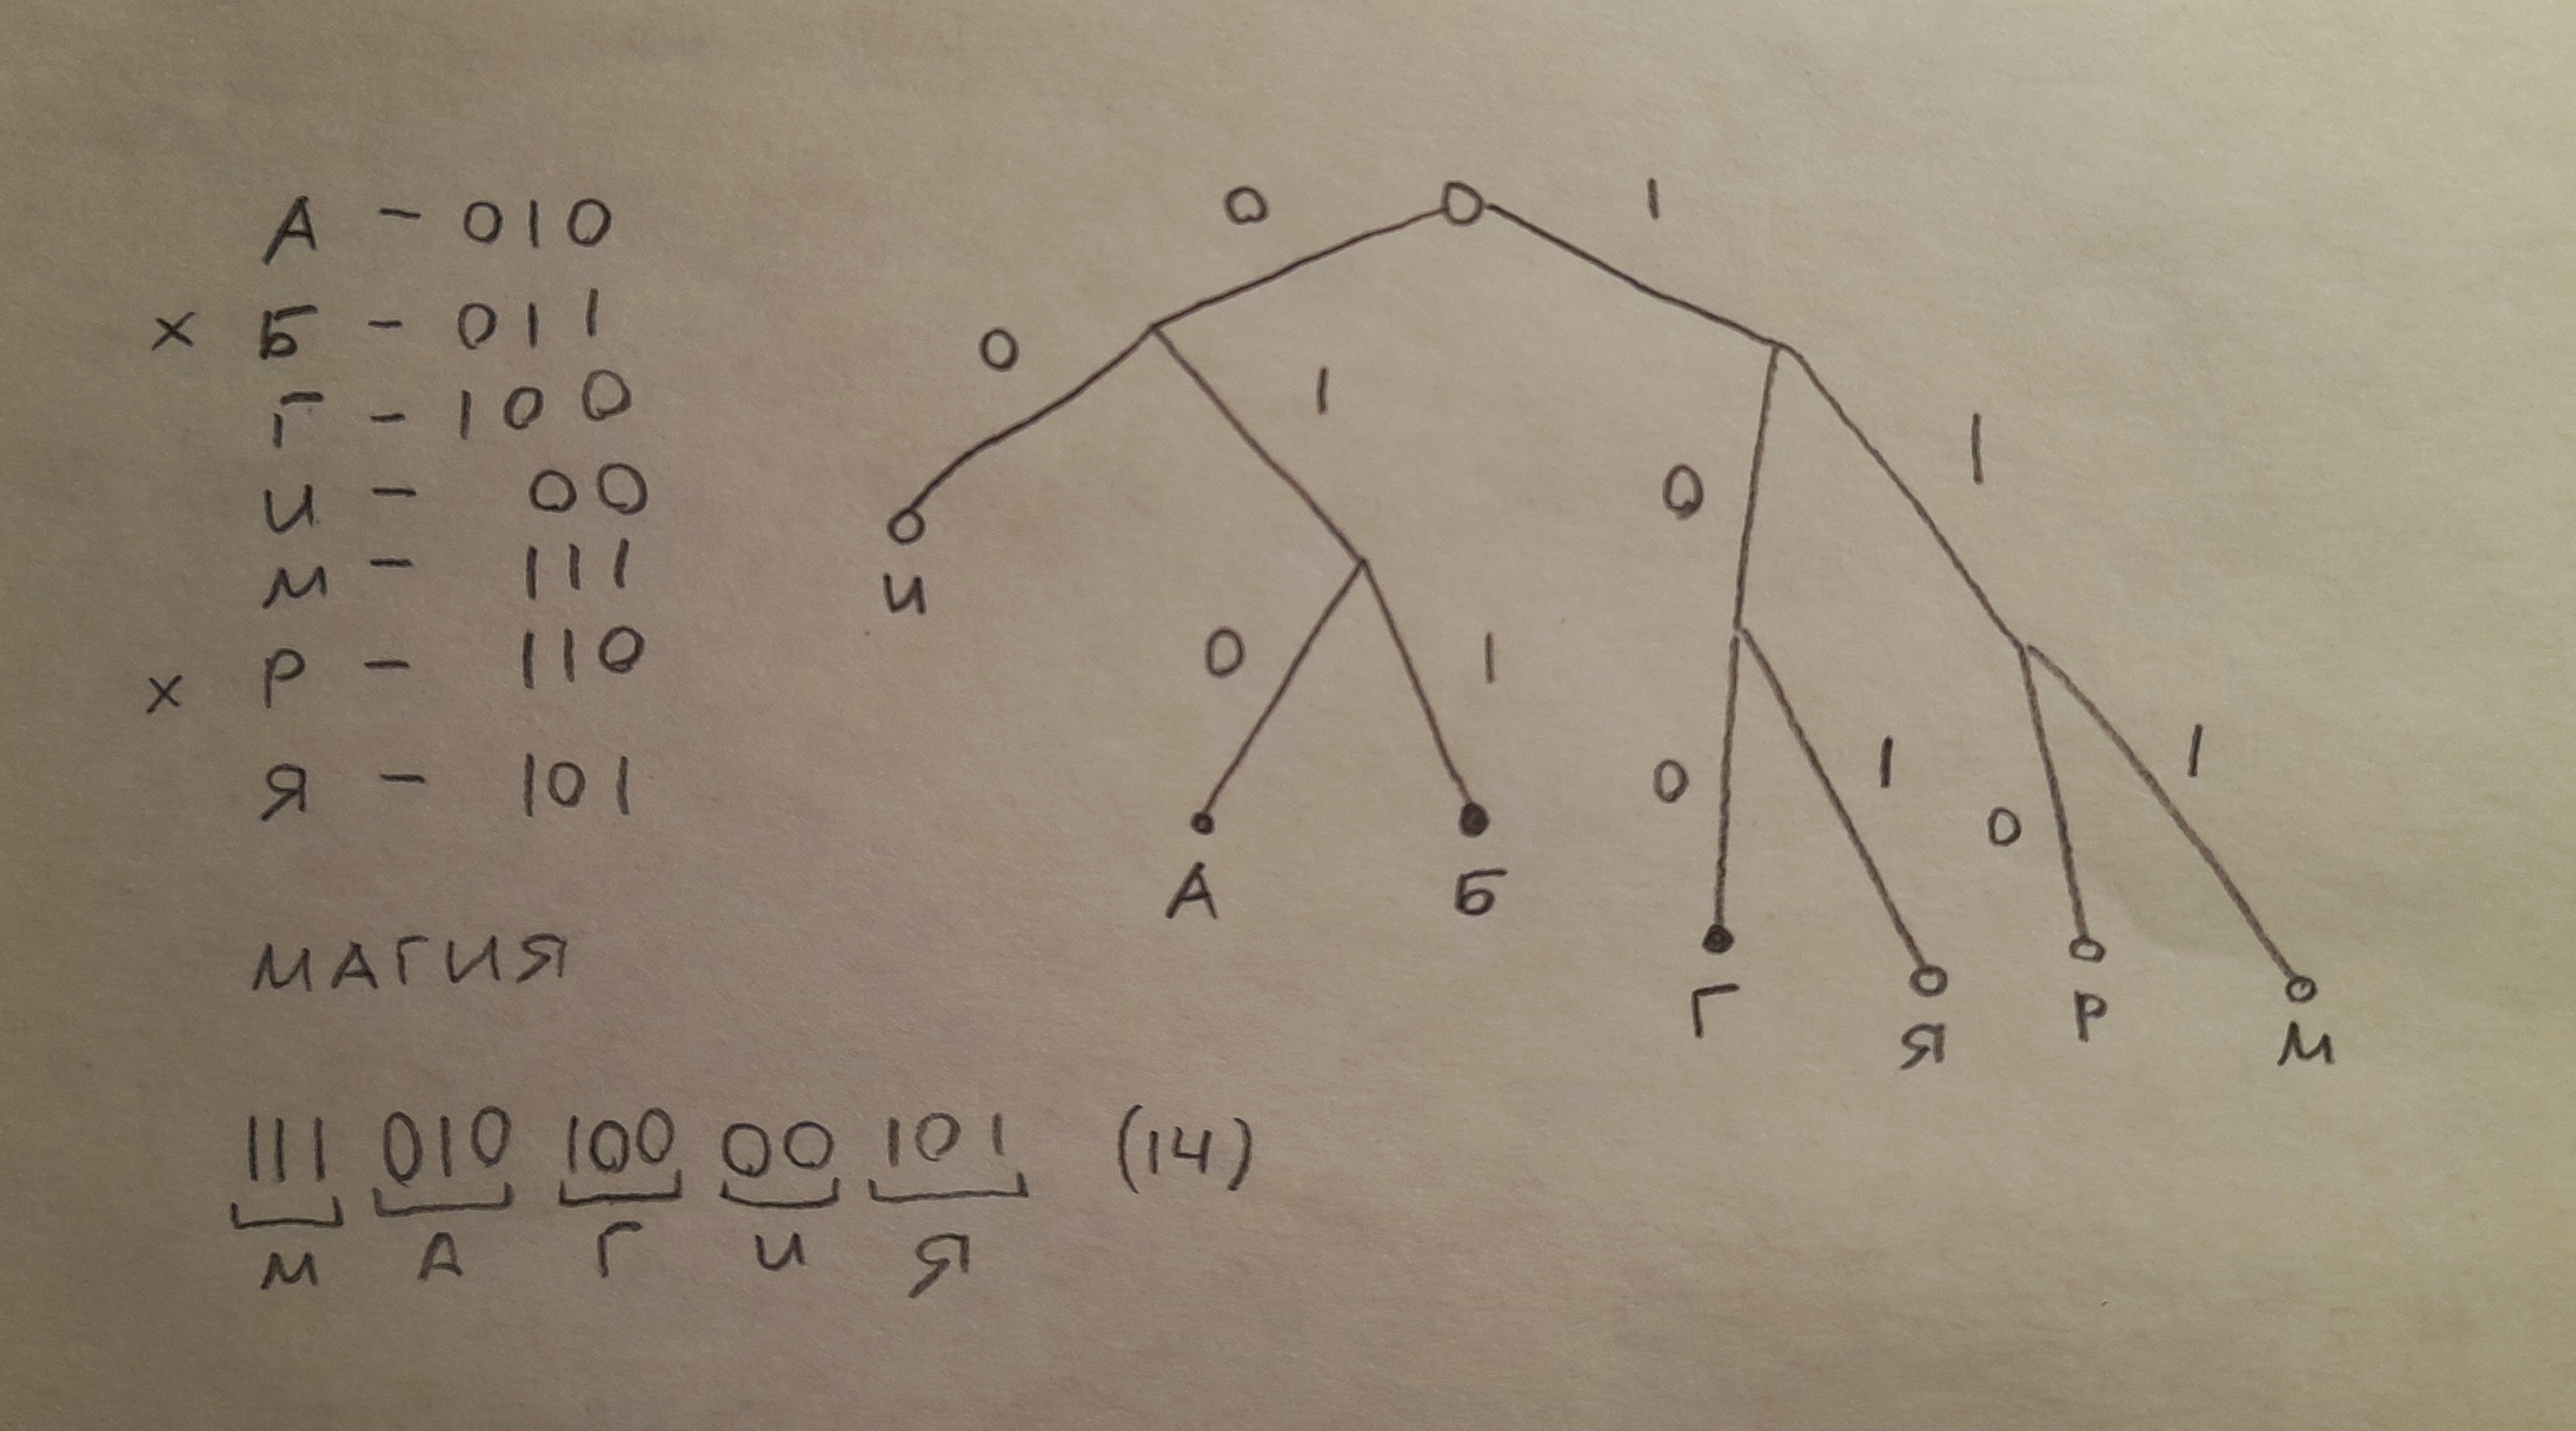 А - 010
x Б - 011
Г - 100
И - 00
М - 111
x Р - 110
Я - 101
МАГИЯ
111 010 100 00 101 (14)
М А Г И Я
0 1
0 1
0 1
И
0 1
0 1
0 1
А Б
Г Я Р М